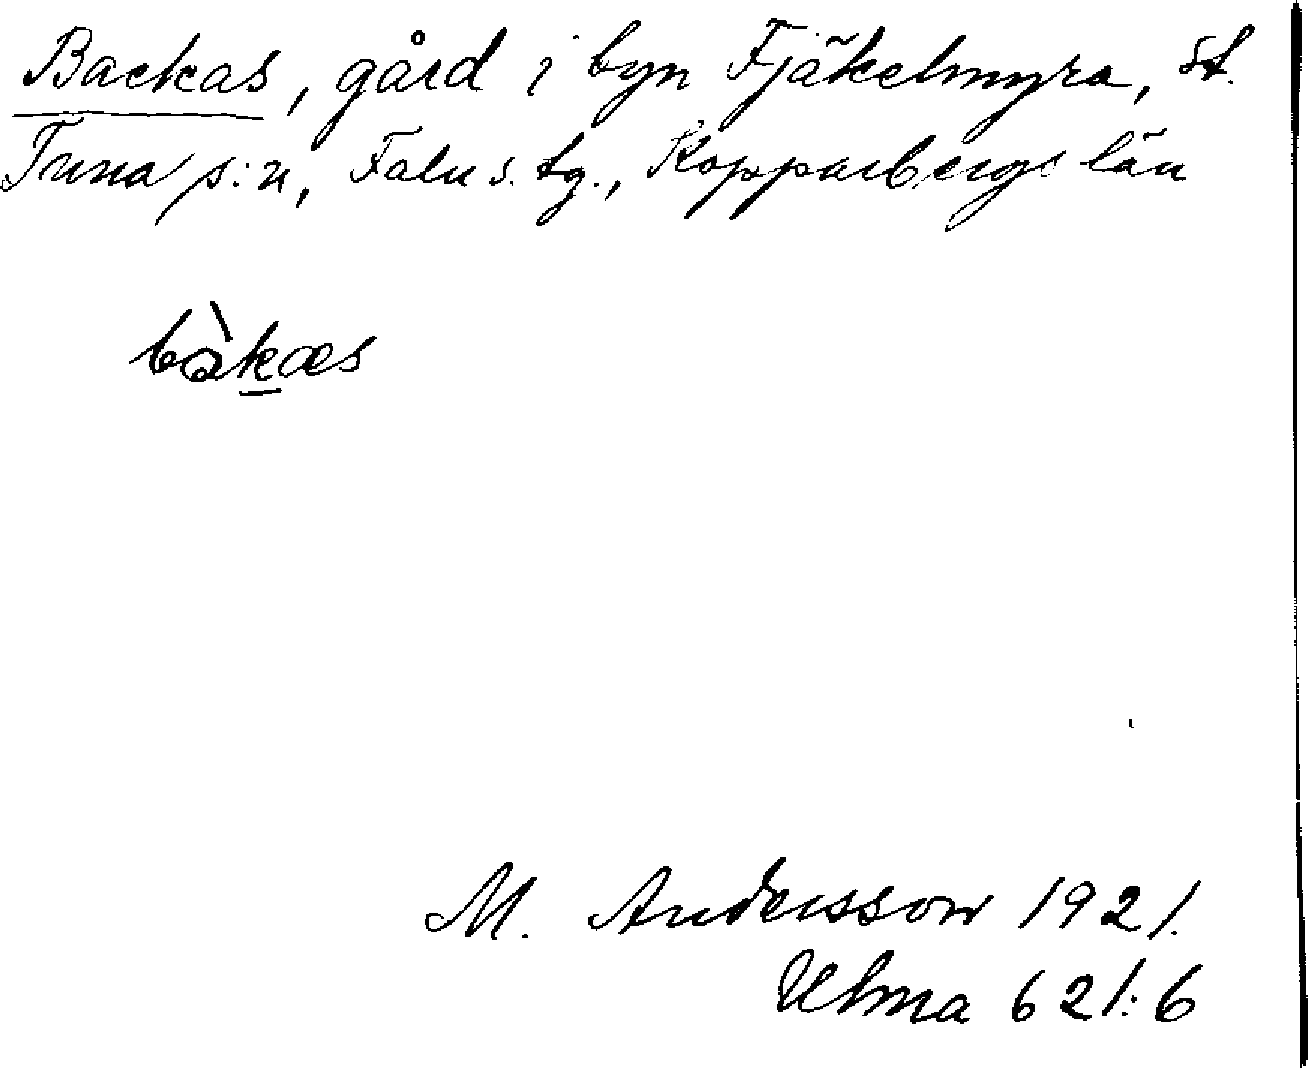 Backas, gård i byn Fjäkelmyra, St.
Tuna s:n, Falu s. tg., Kopparbergs län
bàkas
M. Andersson 1921.
Ulma 621:6